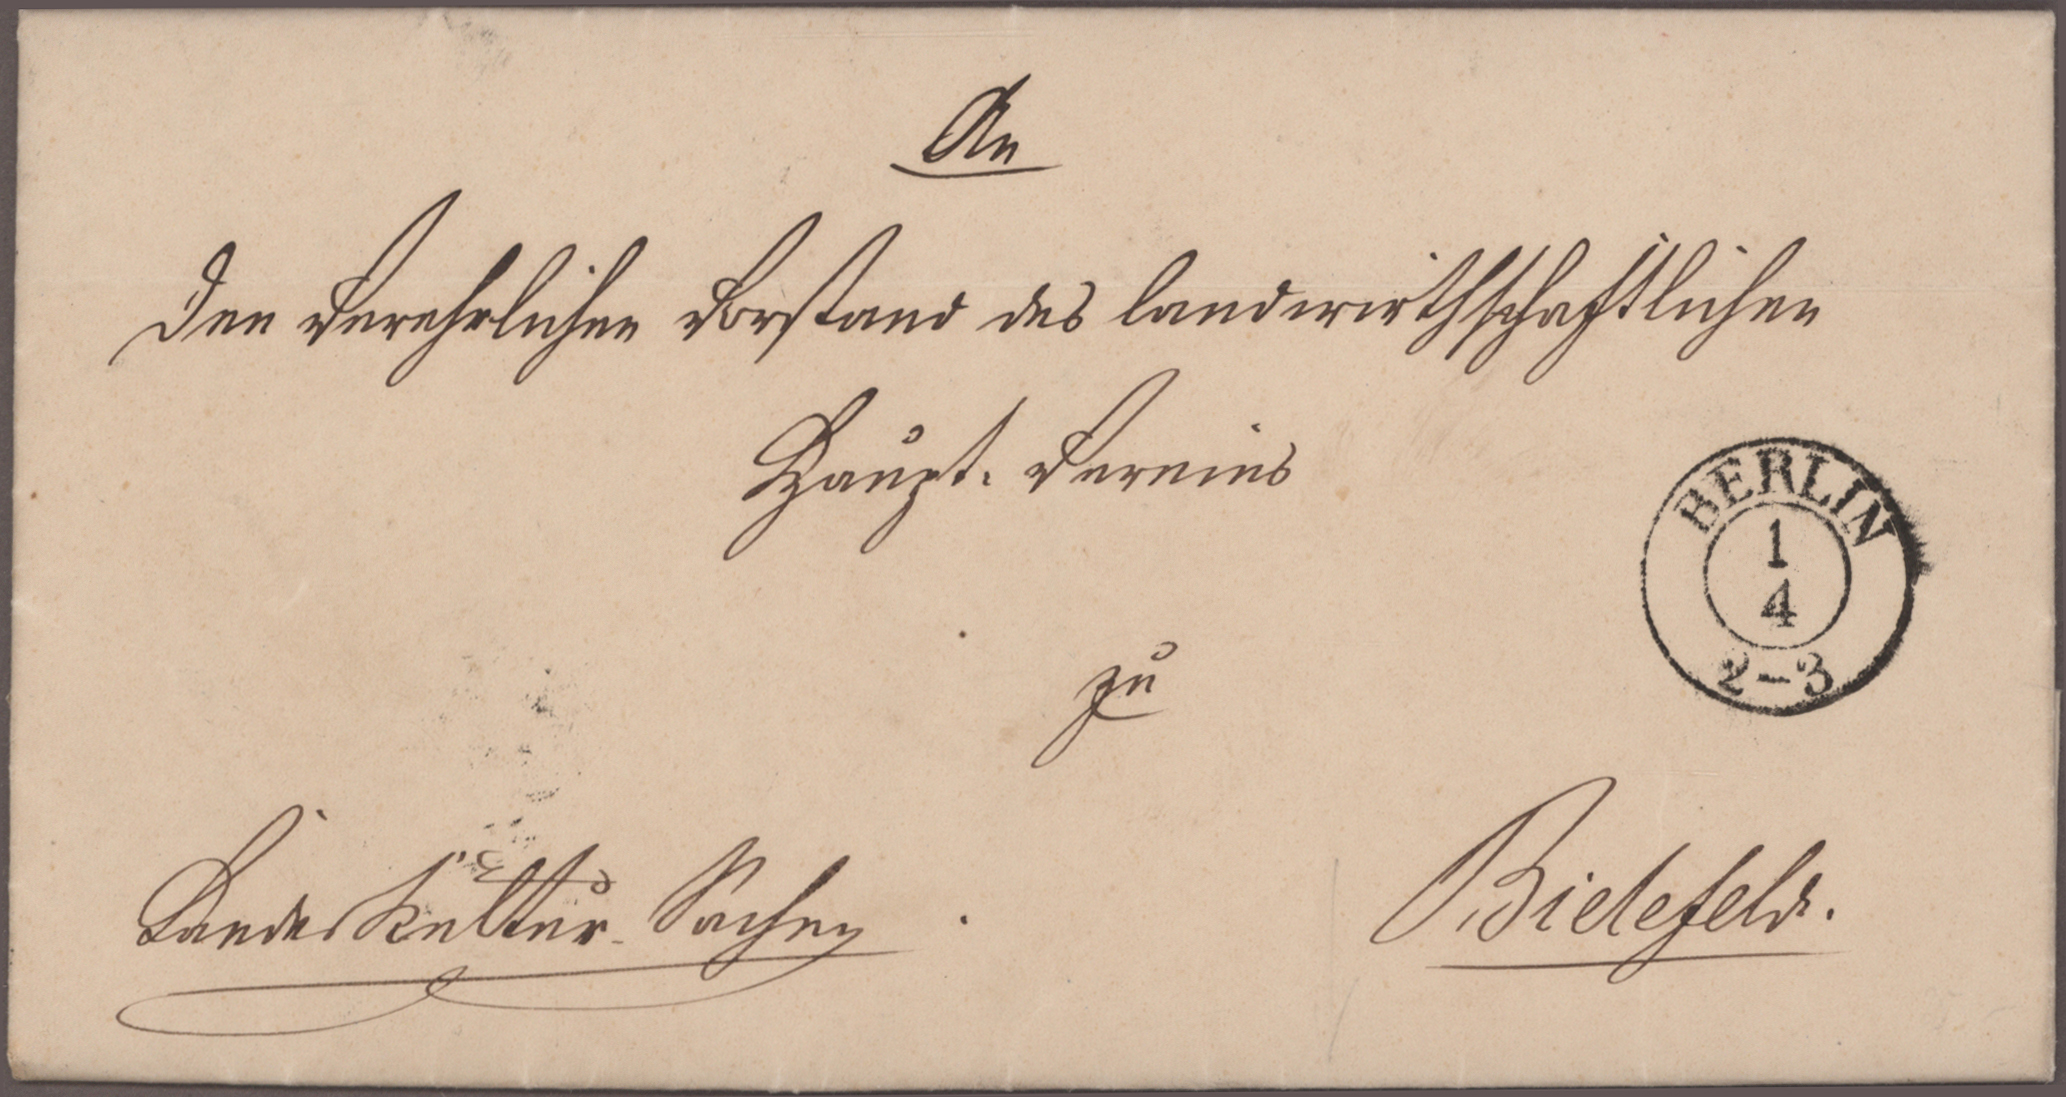 An
Den Verehrlichen Vorstand des landwirthschaftlichen
Haupt-Vereins
BERLIN
1
4
2-3
zu
Landes Kultur-Sachen
Bielefeld.